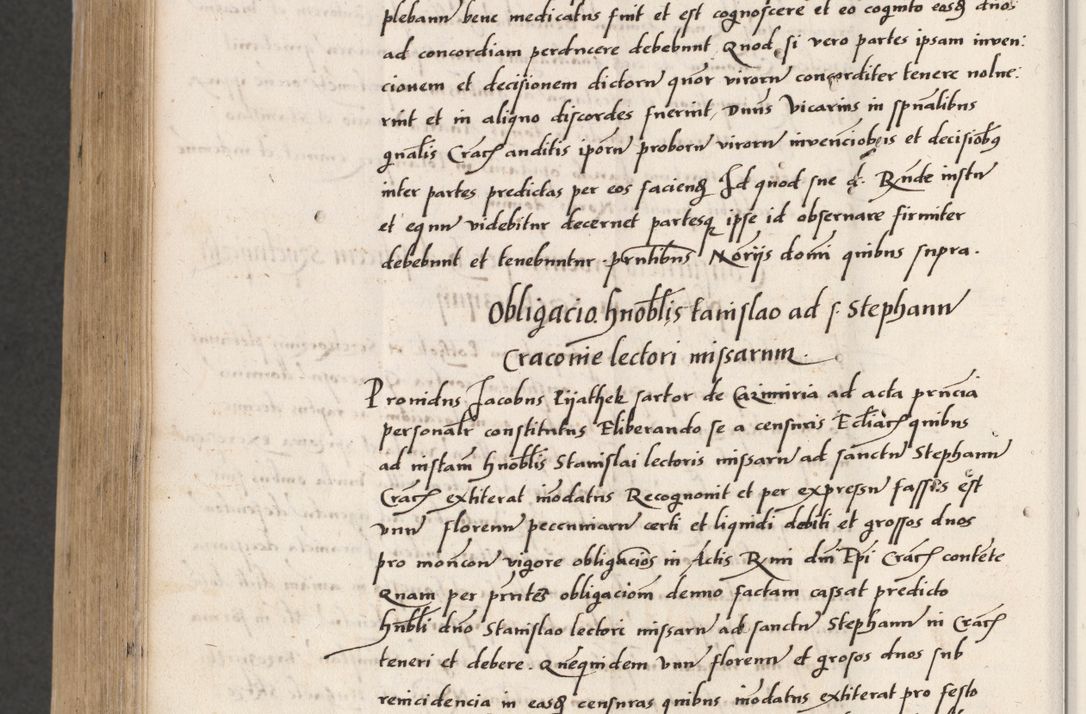 plebanu bene medicatus fuit et est cognoscere et eo cognito easdem dnos
ad concordiam perducere debebunt Quod si vero partes ipsam inven:
cionem et decisionem dictoru quor viroru concorditer tenere nolue:
rint et in aliquo discordes fuerint, Duns Vicarius in spualibus
gnalis Crac auditis iporu proboru viroru invenciobus et decisiobus
inter partes predictas per eos faciend Id quod sue d. Rnde iustu
et equu videbitur decernet partesq ipse id observare firmiter
debebunt et tenebuntur. prntibus Noriis domi quibus supra.
Obligacio hnoblis Stanislao ad s. Stephanu
Cracouie lectori missarum.
Prouidus Jacobus Pijathek sartor de Cazimiria ad acta prncia
personalr constitutus Eliberando se a censuris Ecliac quibus
ad instam hnoblis Stanislai lectoris missaru ad sanctu Stephanu
Crac extiterat inodatus Recognouit et per expressu fassus est
unu florenu pecuniaru certi et liquidi debiti et grossos duos
pro moncon vigore obligacios in Actis Rmi dm Epi Crac contete
Quam per prntes obligaciom denuo factam cassat predicto
hnobli dno Stanislao lectori missaru ad sanctu Stephanu in Crac
teneri et debere. Quequidem unu florenu et grosos duos sub
reincidencia in easdem censuras quibus inodatus extiterat pro festo